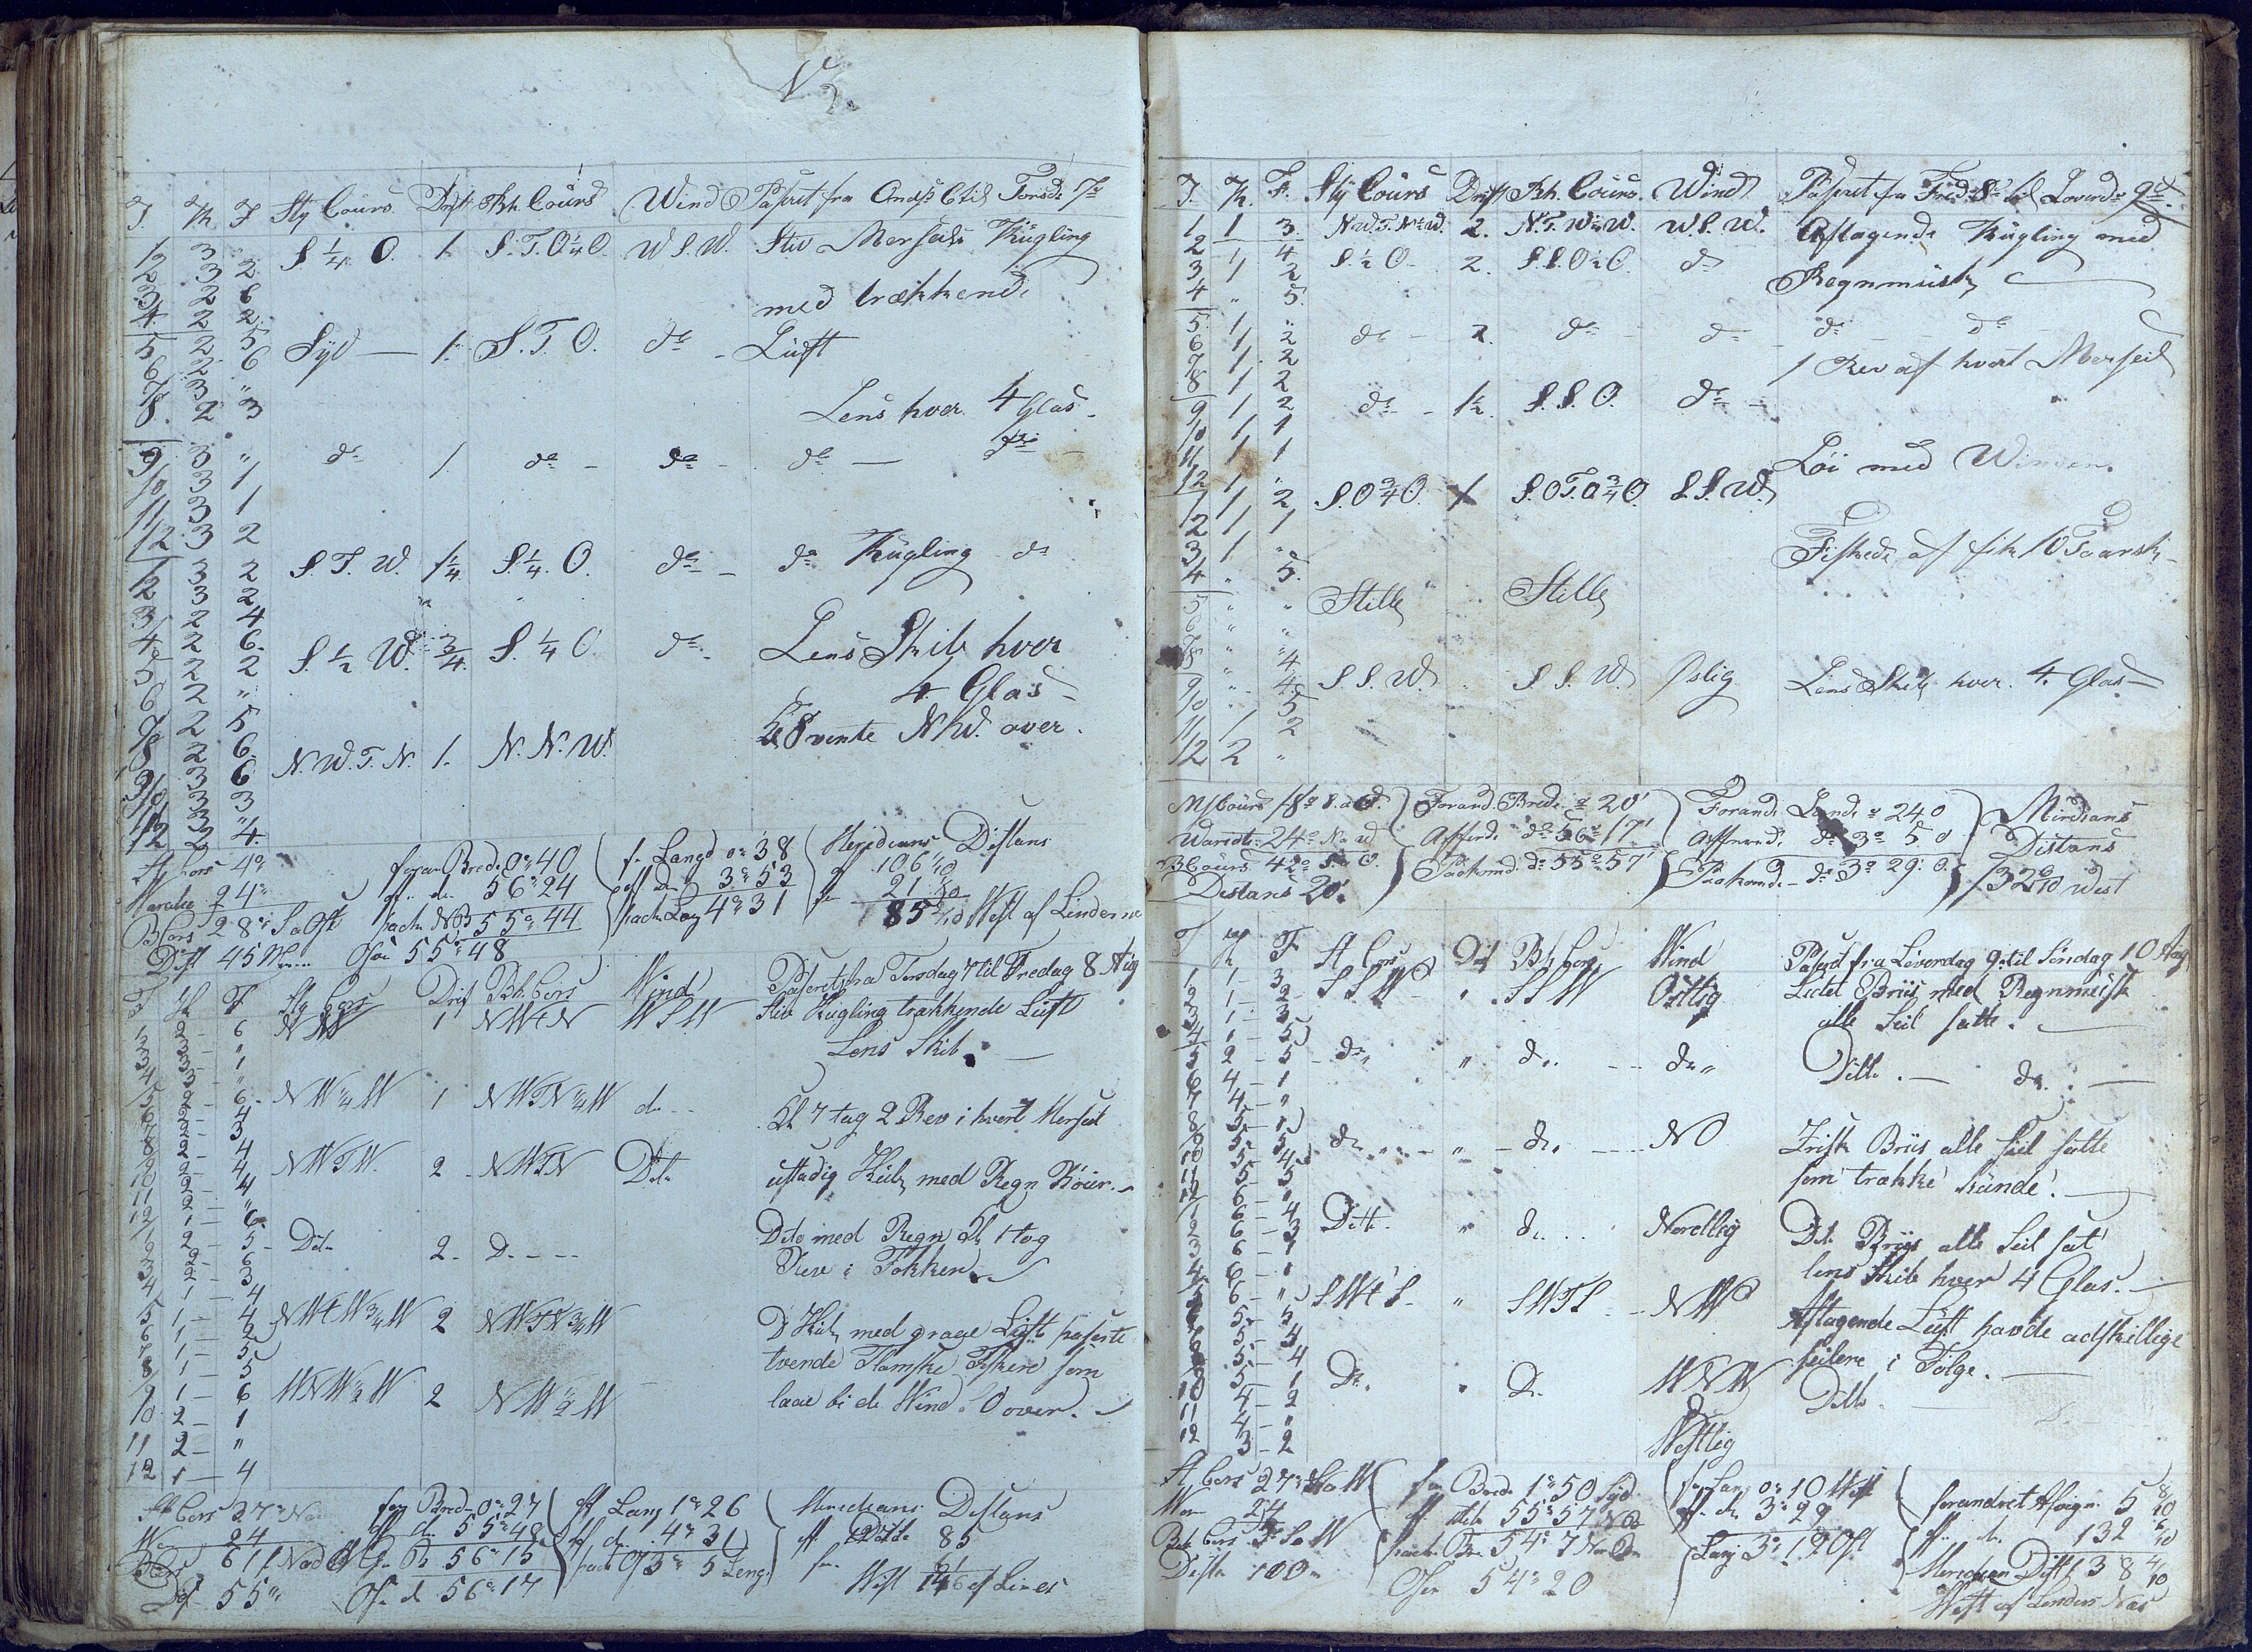 T. K. F Sty Cours. Drift Bh. Cours Wind Paseret fra Onsd 6 til Torsd: 7de
1 3 " S ¼ O. 1. S. T. O ¼ O. W S. W. Stiv Merseils Kugling
2 3 2
3 2 6 med trækkende
4 2 2
5 2 5 Syd — 1. S. T. O. do - Luft
6 2 6
7 3 "
8. 2 3 Lens hver 4 Glas -
9 3 " do 1. do - do - do — do
10 3 1
11 3 1
12 3 2
1 3 2 S. T. W. 1¼ S. ¼ O. do - do Kugling do
2 3 2
3 2 4
4 2 6. Lens Skib hver
5 2 2 S. ½ W. ¾ S. ¼ O. do - 4 Glas -
6 2 "
7 2 5 Kl 8 vente NW. over.
8 2 6
9 3 6 N. W. T. N. 1. N. N. W.
10 3 3
11 3 "
12 2 4.
St Cors 4° foran Brede 0° 40 f. Langd 0° 38 Meridians Distans
24° aff. do 56° 24 aff do 3° 53 af 106
B Cors 28° S a Ost 55° 44 Lang 4° 31 21
Dist 45 M Obs 55° 48 85 West af Linderne
T K F Sty Cors Drift Bh. Cors Wind Paseret fra Torsdag 7 til Fredag 8 Aug
1 2 - 6 NW 1 NWtN WSW Stiv Kugling trækkende Luft
2 3 - "
3 3 - 1 Lens Skib. —
4 3 - "
5 2 - 6 - NW ¼ W 1 NWTN ¼ W do - Kl 7 tag 2 Rev i hvert Merseil
6 2 - 4
7 2 - 3
8 2 - 4
9 2 - 4 NWTW. 2 - NWTN Dito ustadig Kule med Regn Böier. -
10 2 - 4
11 2 - "
12 1 - 6
1 2 - 5 - Dito 2 - D. - - - Dito med Regn Kl 1 tog
2 2 - 6 Rev i Fokken
3 2 - 3
4 1 - 4
5 1 - 4 NWtW ¾ W 2 NWTN ¾ W D Kule med graae Luft paserte
6 1 - 2 tvende Flamske Fiskere som
7 1 - 5
8 1 - 5
9 1 - 6 WNW ½ W 2 NW ½ W laae bi de Wind S O over.
10 2 - 1
11 2 - "
12 1 - 4
St Cors 37° for Brede 0° 27 ff Lang 1° 26 Meridians Distans
24 aff do 55° 48 aff do 4° 31 aff Ditto 85
61 do 56° 15 3° 5 Leng.
Dist 55 Obs. d 56° 17 West af Lines
T. K. F. Sty Cours Drift Bh. Cours. Wind Paseret fra Fred: 8de til Loverd: 9de
1 1 3. NW. T. N ½ W. 2. N. T. W ½ W. W. S. W. Aftagende Kugling med
2 1 4 S. ½ O - 2. S. S. O ½ O. do
3 1 2 Regnmusk
4 " 5.
5 1 " do - 2. do - do - do - do -
6 1 2
7 1 2 1 Rev af hvert Merseil
8 1 2
9 1 2 do - 1½. S. S. O. do -
10 1 1
11 1 1 Löi med Winden.
12 1 "
1 1 2 S. O ¾ O. 1 S. O T. O ¾ O. S. S. W.
2 1 1
3 1 " Fiskede af fik 10 Toarsk -
4 " 5.
5 " " Stille Stille
6 " "
7 " "
8 " 4
9 " 4. S S. W. S S. W. Oslig Lens Skib hver. 4. Glas -
10 " 5
11 1 2
12 2 "
Ms Cours 18° S. a O. Forand. Brede ° 20' Forand. Længde ° 24 0 Miridians
24° N a W Affarende do 56° 17' Affarende do 3° 5 0 Distans
B Cours 42° S a O. Paakomd. do 55° 57' Paakomd. do 3° 29. 0. 132 6/10 West
Distans 20'.
T K F St Cors Dft Bh Cors Wind Paserd fra Löverdag 9 til Söndag 10 Aug
1 1 - 3 SSW " SSW Ostlig Lidet Briis med Regnmusk
2 1 - 2
3 1 - 3 alle Seil satte. —
4 1 - 5
5 2 - 5 do " do do Ditto. — do. —
6 4 - 1
7 4 - "
8 5 - 1
9 5 - 5 do " - do NO Frisk Briis alle Seil satte
10 5 - 4
11 5 - 5 som trække kunde. —
12 6 - "
1 6 - 4 Ditto " d. Nordlig Dito Briis alle Seil sat
2 6 - 3
3 6 - 1 lens Skib hver 4 Glas. —
4 6 - 1
5 6 - " SWtS - " SWTS NW Aftagende Luft havde adskillige
6 5 - 5
7 5 - 4 seilere i Fölge. —
8 5 - 4
9 5 - 1 Do. " D. WNW Ditto.
10 4 - 2
11 4 - " Westlig
12 3 - 2
St Cors 27° S a W for Brede 1° 50 Syd for Lang 0° 10 West forandret Afvign. 5 8/10
24 aff do 55° 57 Nord aff. do 3° 29 aff. do 132 6/10
Beh Cors 3° S a W Br. 54° 7 Lang 3° 19 Ost Meridian Dist 138 4/10
Distn 100 Obser 54° 20 West af Linders Næs